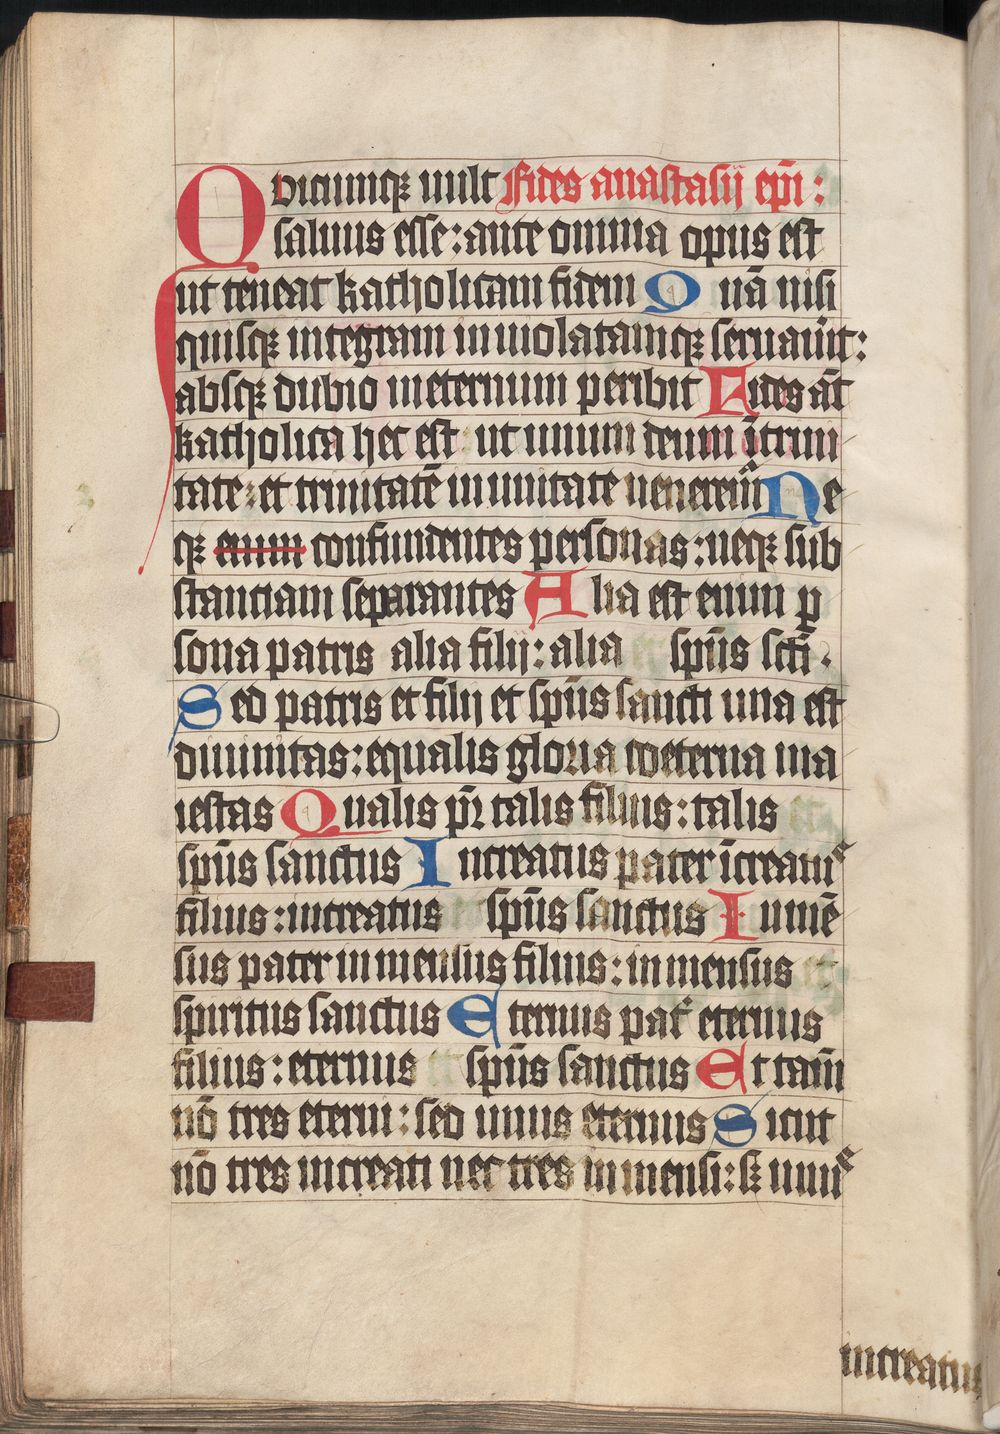 Quicumqꝫ vult Fides anastasij ep̄i :
saluus esse : ante omnia opus est
ut teneat katholicam fidem Quā nisi
quisqꝫ integram inuiolatamqꝫ seruau̅it :
absqꝫ dubio ineternum peribit Fides āt
katholica hec est : ut unum deum ī trini
tate : et trinitatē in unitate uenerem̄ Ne
qꝫ enim confundentes personas : neqꝫ sub
stantiam separantes Alia est enim ꝑ
sona patris alia filij : alia sp̄us sc̄ti .
Sed patris et filij et sp̄us sancti una est
diuinitas : equalis gloria coeterna ma
iestas Qualis pr̄ talis filius : talis
sp̄us sanctus Increatus pater īcreatuˢ
filius : increatus sp̄us sanctus Inmē
sus pater inmensus filius : inmensus
spiritus sanctus Eternus pat̄ eternus
filius : eternus sp̄us sanctus Et tam̄
nō tres eterni : sed unus eternus Sicut
nō tres increati nec tres inmensi : sꝫ unuˢ
increatus